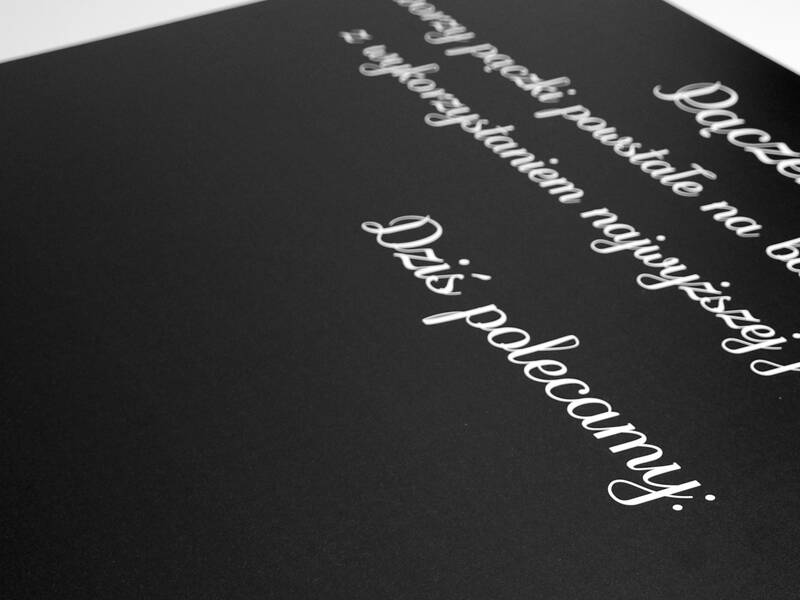 pączki powstałe na
z wykorzystaniem najwyższej
Dziś polecamy: